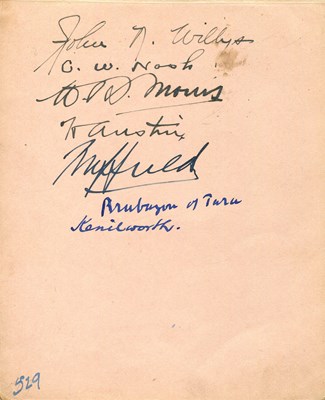 John N. Willys
C. W. Nash
W R Morris
H Austin
Nuffield
Brabazon of Tara
Kenilworth.
529